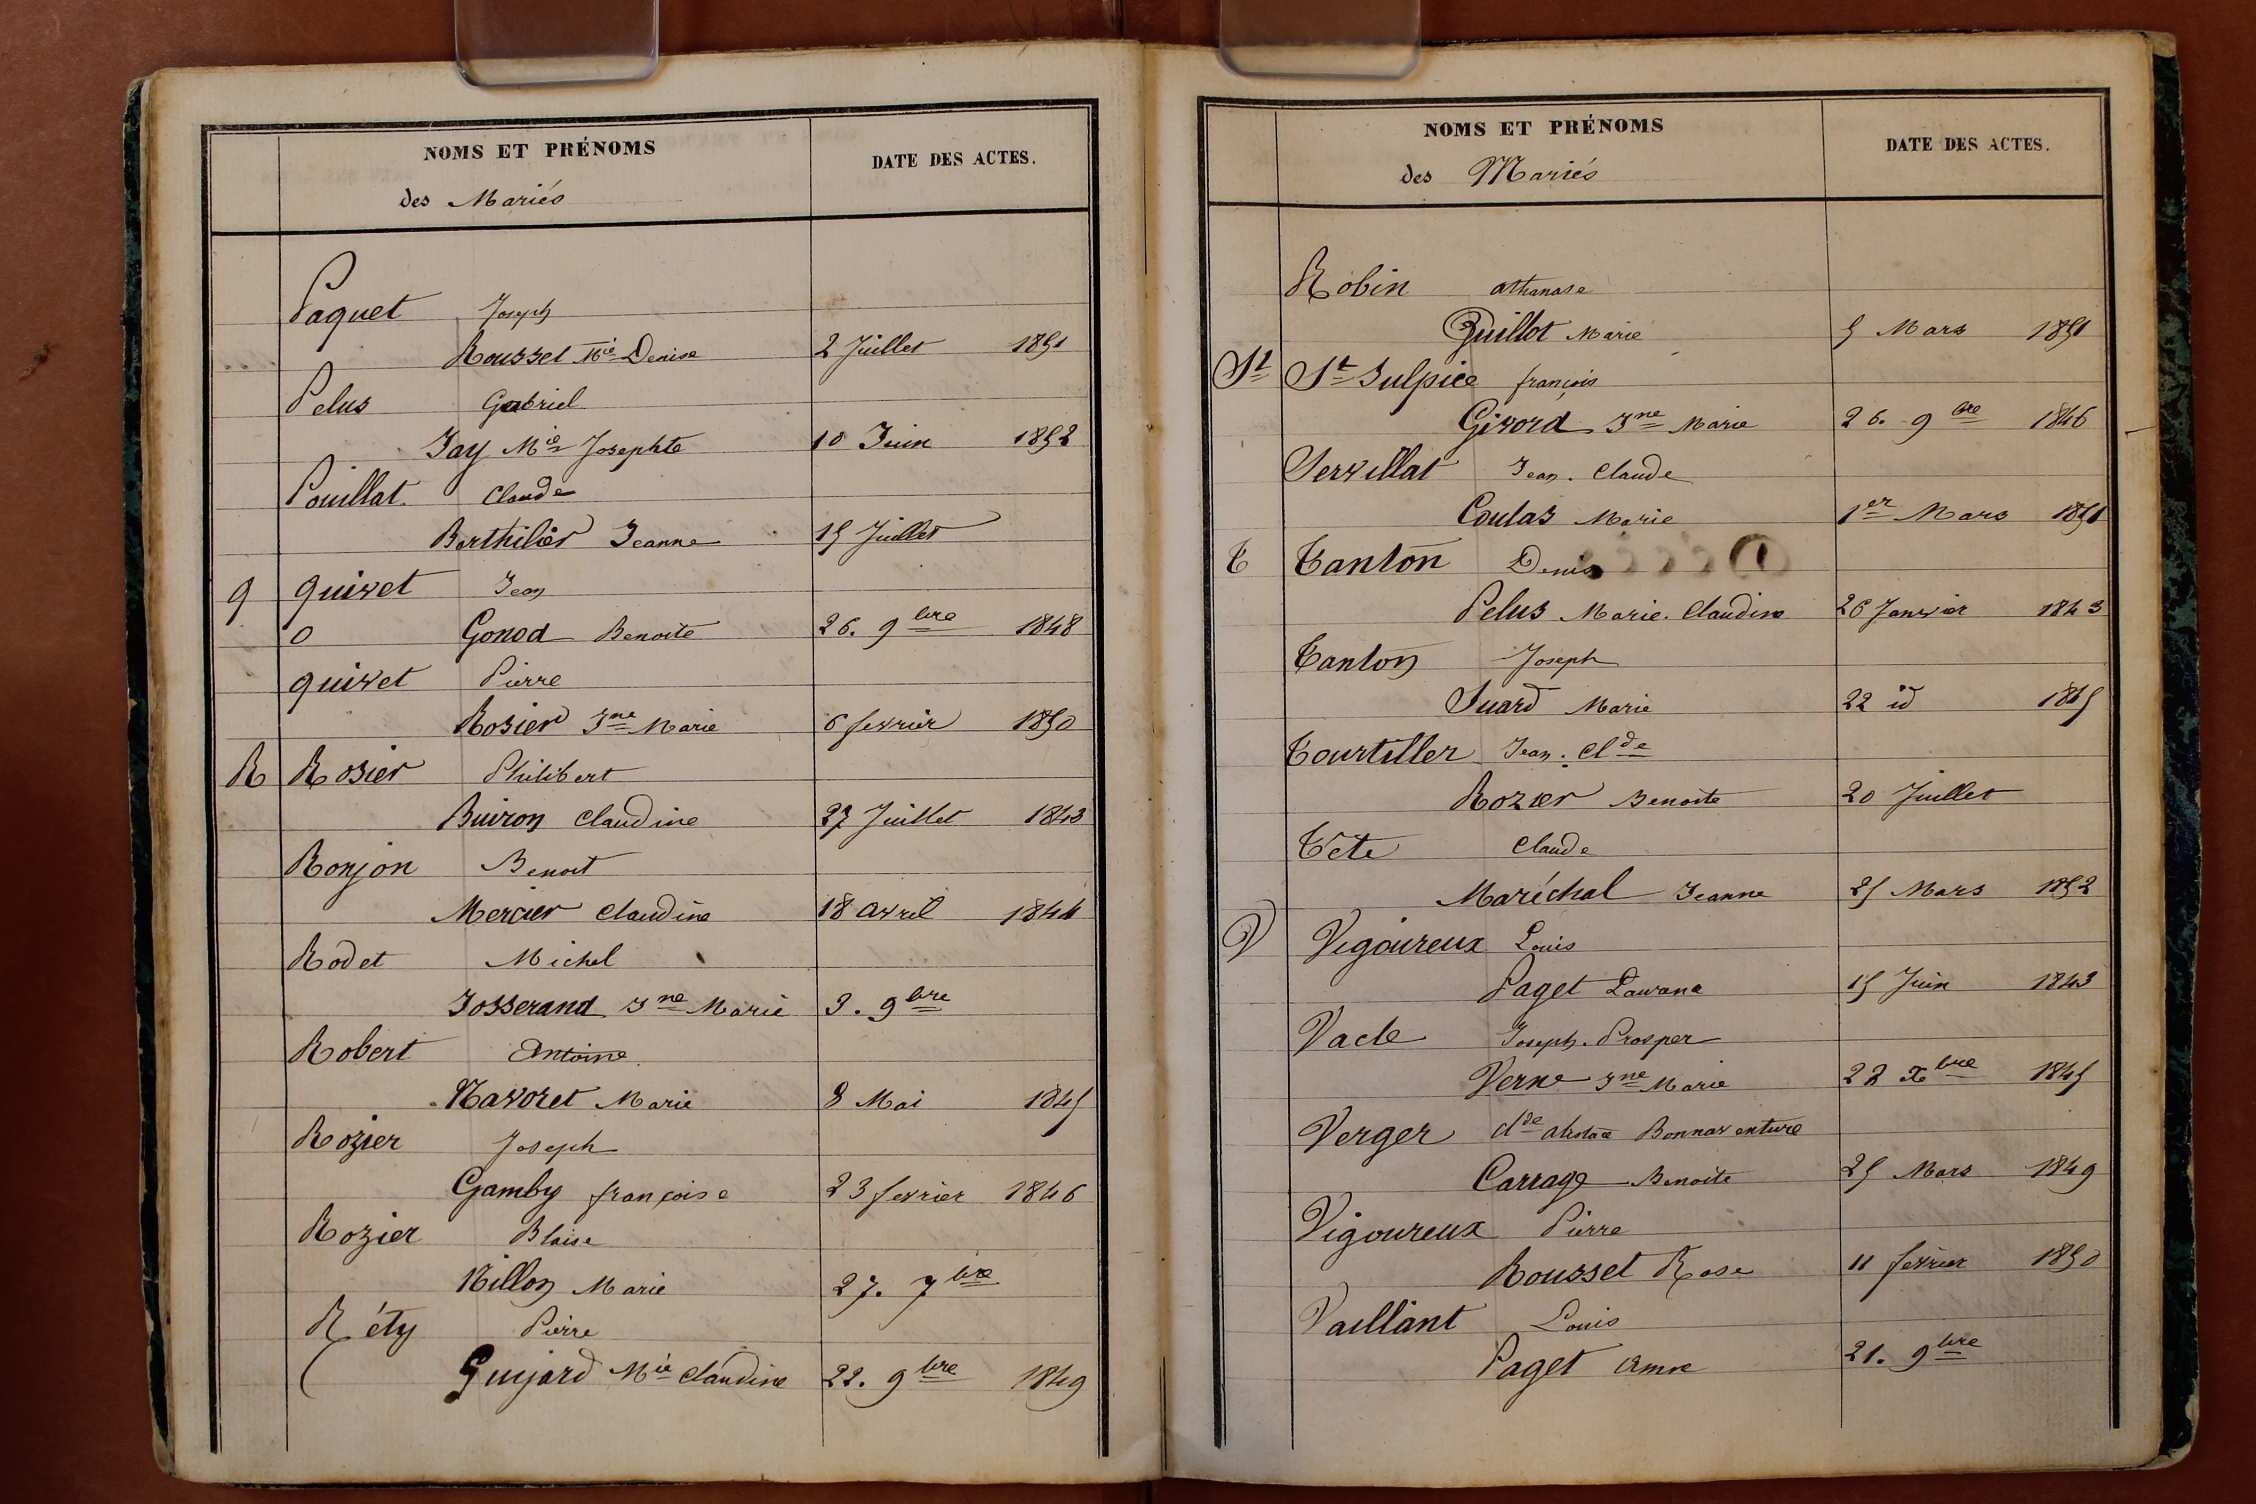 NOMS ET PRÉNOMS
DATE DES ACTES.
des Mariés
Paquet Joseph
Rousset Mie Denise 2 Juillet 1851
Pelus Gabriel
Jay Mie Josephte 10 Juin 1852
Pouillat Claude
Berthilier Jeanne 15 Juillet
Q Quivet Jean
0 Gonod Benoite 26. 9bre 1848
Quivet Pierre
Rosier Jne Marie 6 fevrier 1850
R Rosier Philibert
Buiron Claudine 27 Juillet 1843
Ronjon Benoit
Mercier Claudine 18 avril 1844
Rodet Michel
Josserand Jne Marie 3. 9bre
Robert Antoine
Navoret Marie 8 Mai 1845
Rozier Joseph
Gamby françoise 23 fevrier 1846
Rozier Blaise
Nillon Marie 27. 7bre
Réty Pierre
Guijard Mie Claudine 22. 9bre 1849
NOMS ET PRÉNOMS
DATE DES ACTES.
des Mariés
Robin athanase
Guillot Marie 5 Mars 1851
St St Sulpice françois
Girord Jne Marie 26. 9bre 1846
Servillat Jean. Claude
Coulas Marie 1er Mars 1851
T Tanton Denis
Pelus Marie. Claudine 26 Janvier 1843
Tanton Joseph
Suard Marie 22 id 1845
Tourtiller Jean. Clde
Rozier Benoite 20 Juillet
Tête Claude
Maréchal Jeanne 25 Mars 1852
V Vigoureux Louis
Paget 15 Juin 1843
Vacle Joseph. Prosper
Verne Jne Marie 22 xbre 1845
Verger Clde Bonnaventure
Carrage Benoite 25 Mars 1849
Vigoureux Pierre
Rousset Rose 11 fevrier 1850
Vaillant Louis
Paget Anne 21. 9bre